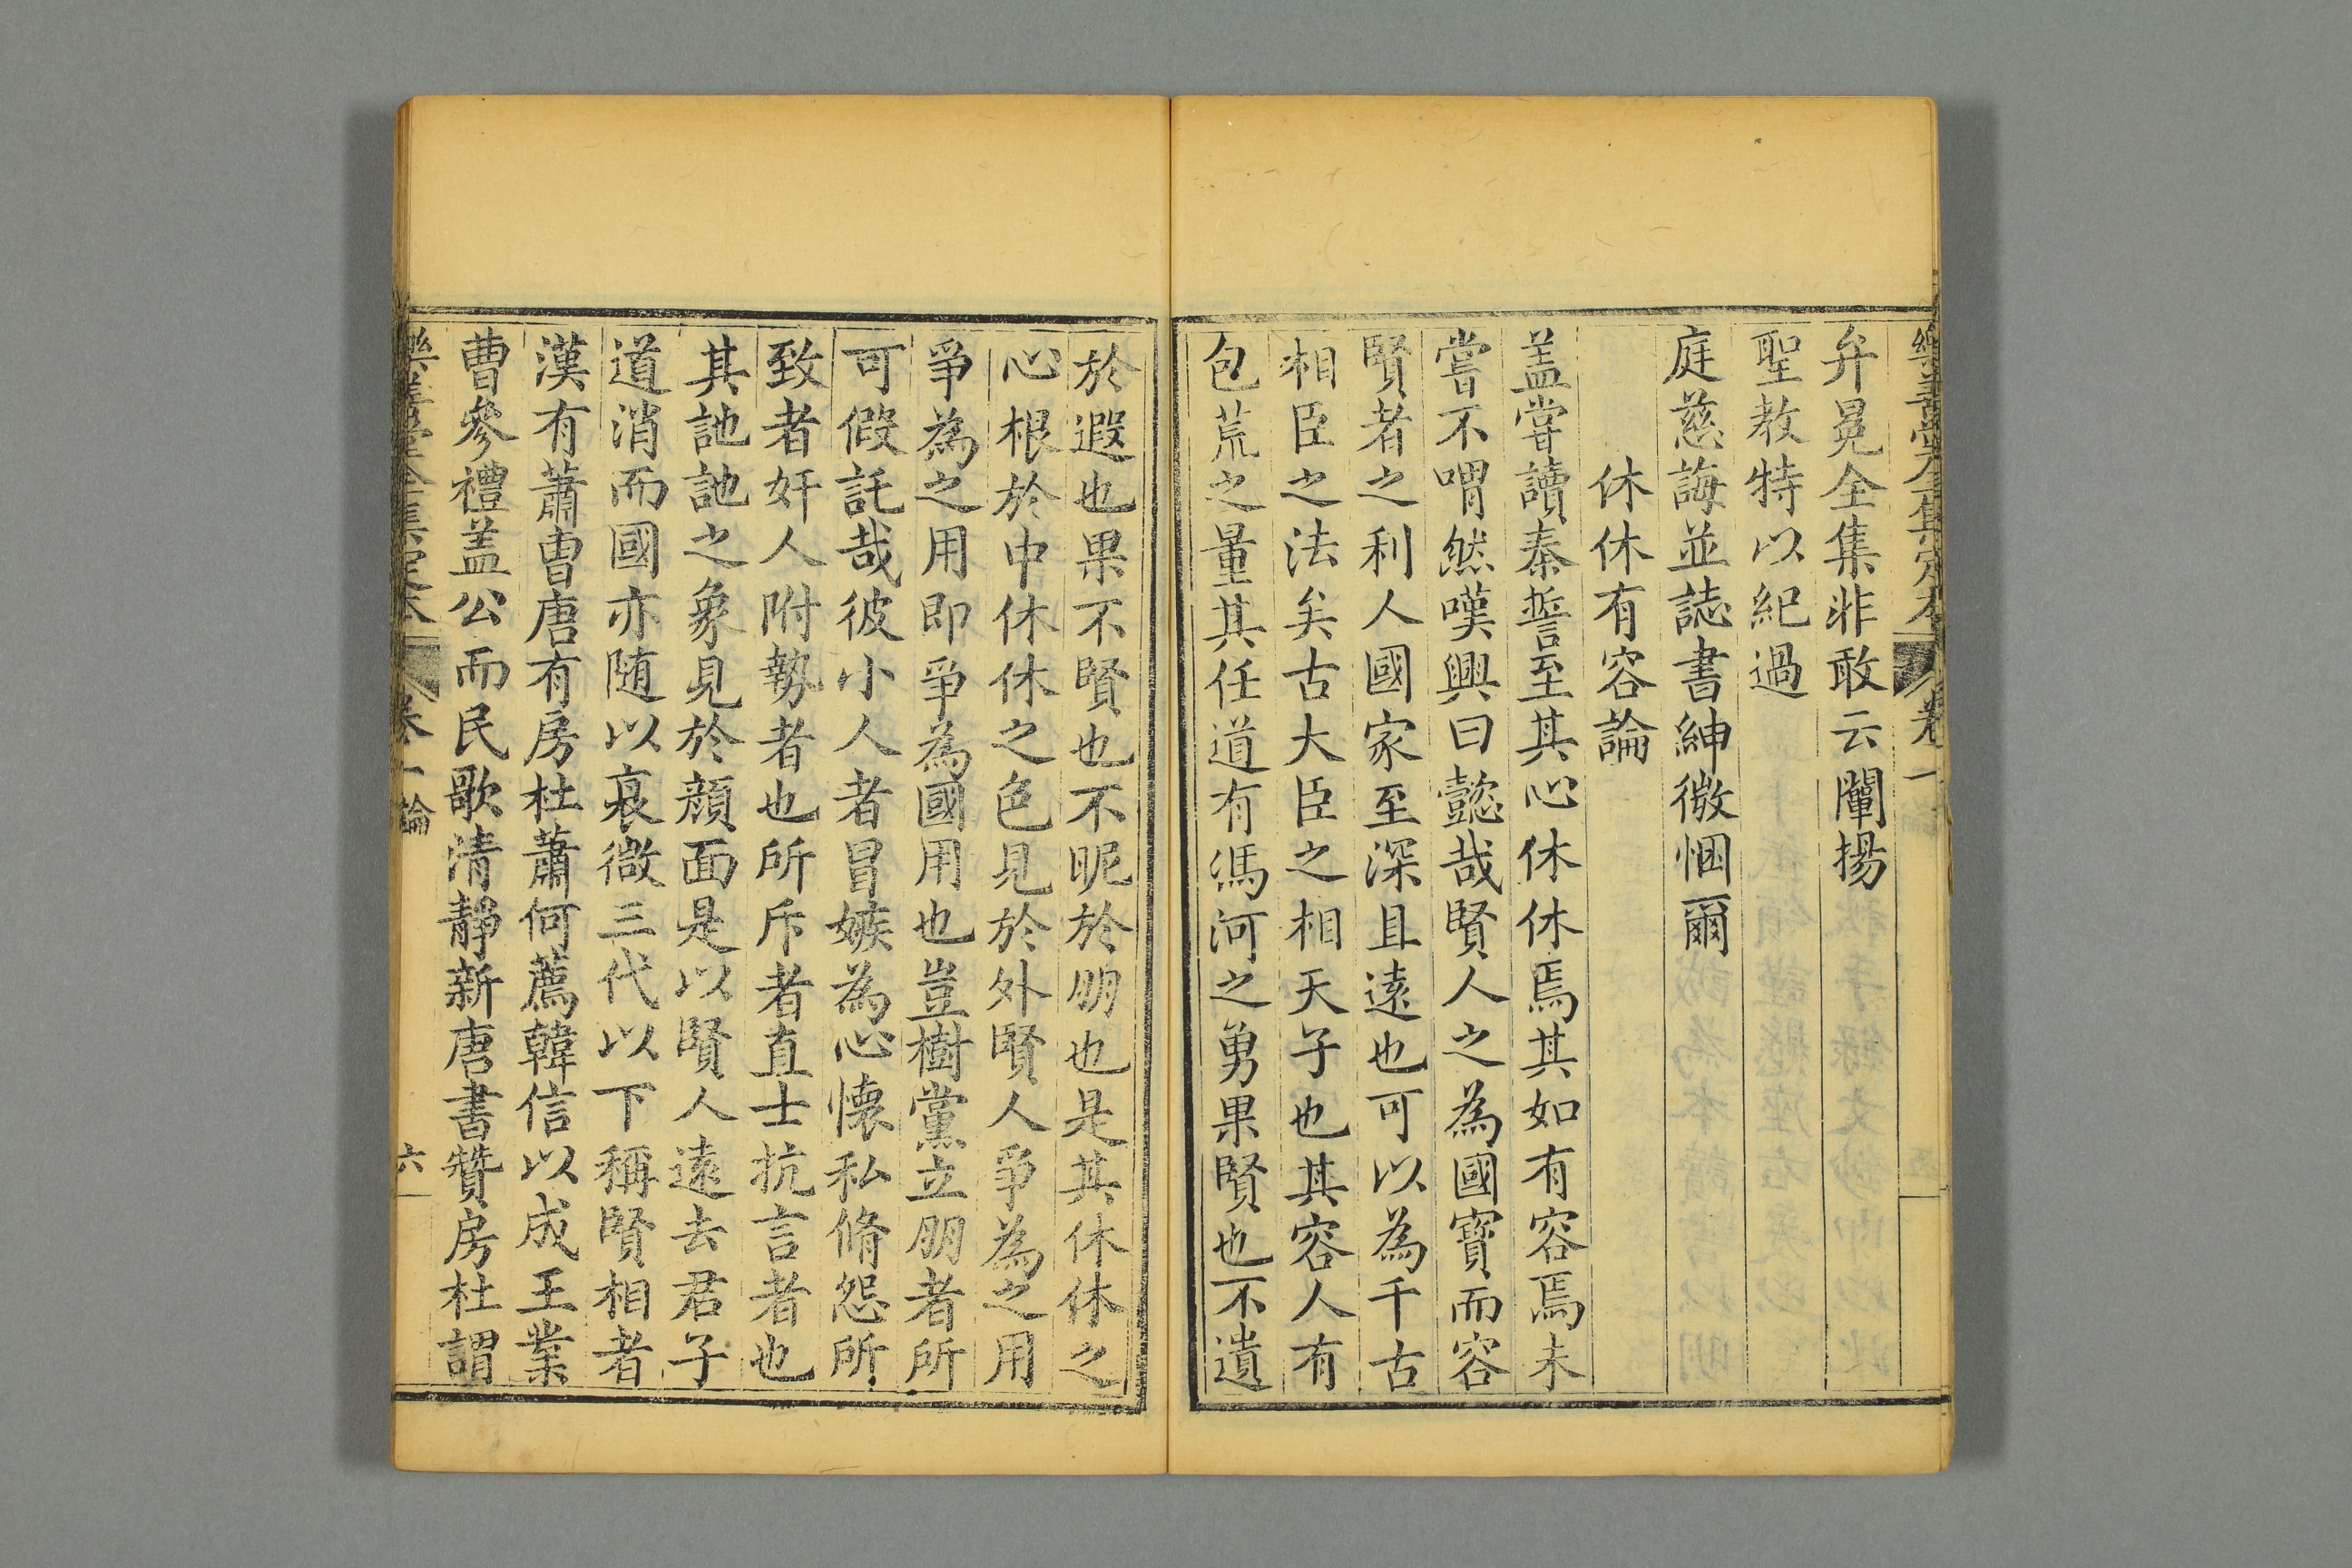 樂善堂全集定本 卷一
弁冕全集非敢云闡揚
聖教特以紀過
庭慈誨並誌書紳微悃爾
休休有容論
盖嘗讀秦誓至其心休休焉其如有容焉未
嘗不喟然嘆興曰懿哉賢人之為國寳而容
賢者之利人國家至深且遠也可以為千古
相臣之法矣古大臣之相天子也其容人有
包荒之量其任道有馮河之勇果賢也不遺
於遐也果不賢也不昵於朋也是其休休之
心根於中休休之色見於外賢人爭為之用
爭為之用即爭為國用也豈樹黨立朋者所
可假託哉彼小人者冒嫉為心懐私脩怨所
致者奸人附勢者也所斥者直士抗言者也
其訑訑之象見於顔面是以賢人遠去君子
道消而國亦随以衰微三代以下稱賢相者
漢有蕭曹唐有房杜蕭何薦韓信以成王業
曹參禮盖公而民歌清靜新唐書贊房杜謂
樂善堂全集定本 卷一 論 六